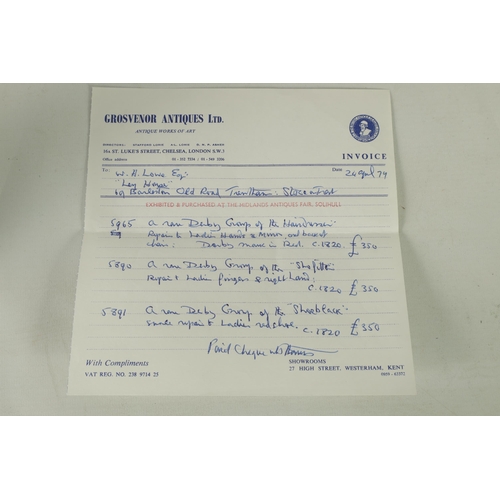 GROSVENOR ANTIQUES LTD.
ANTIQUE WORKS OF ART
DIRECTORS: STAFFORD LORIE
ST. LUKE'S STREET, CHELSEA, LONDON S.W.3
Office address
INVOICE
To: W. H. Lowe Esq. Date 26 April 79
Old Road Trentham: Stoke on Trent
EXHIBITED & PURCHASED AT THE MIDLANDS ANTIQUES FAIR, SOLIHULL
5965 A rare Derby Group of the Hairdresser
Repair to Ladies Hand & Mirror and
chair. Derby mark in Red. c.1820. £350
5890 A rare Derby Group of the
Repair to Ladies fingers & right hand.
c.1820 £350
5891 A rare Derby Group of the "Shoeblack"
small repair to Ladies c.1820 £350
Paid Cheque with thanks
With Compliments
VAT REG. NO. 238 9714 25
SHOWROOMS
27 HIGH STREET, WESTERHAM, KENT